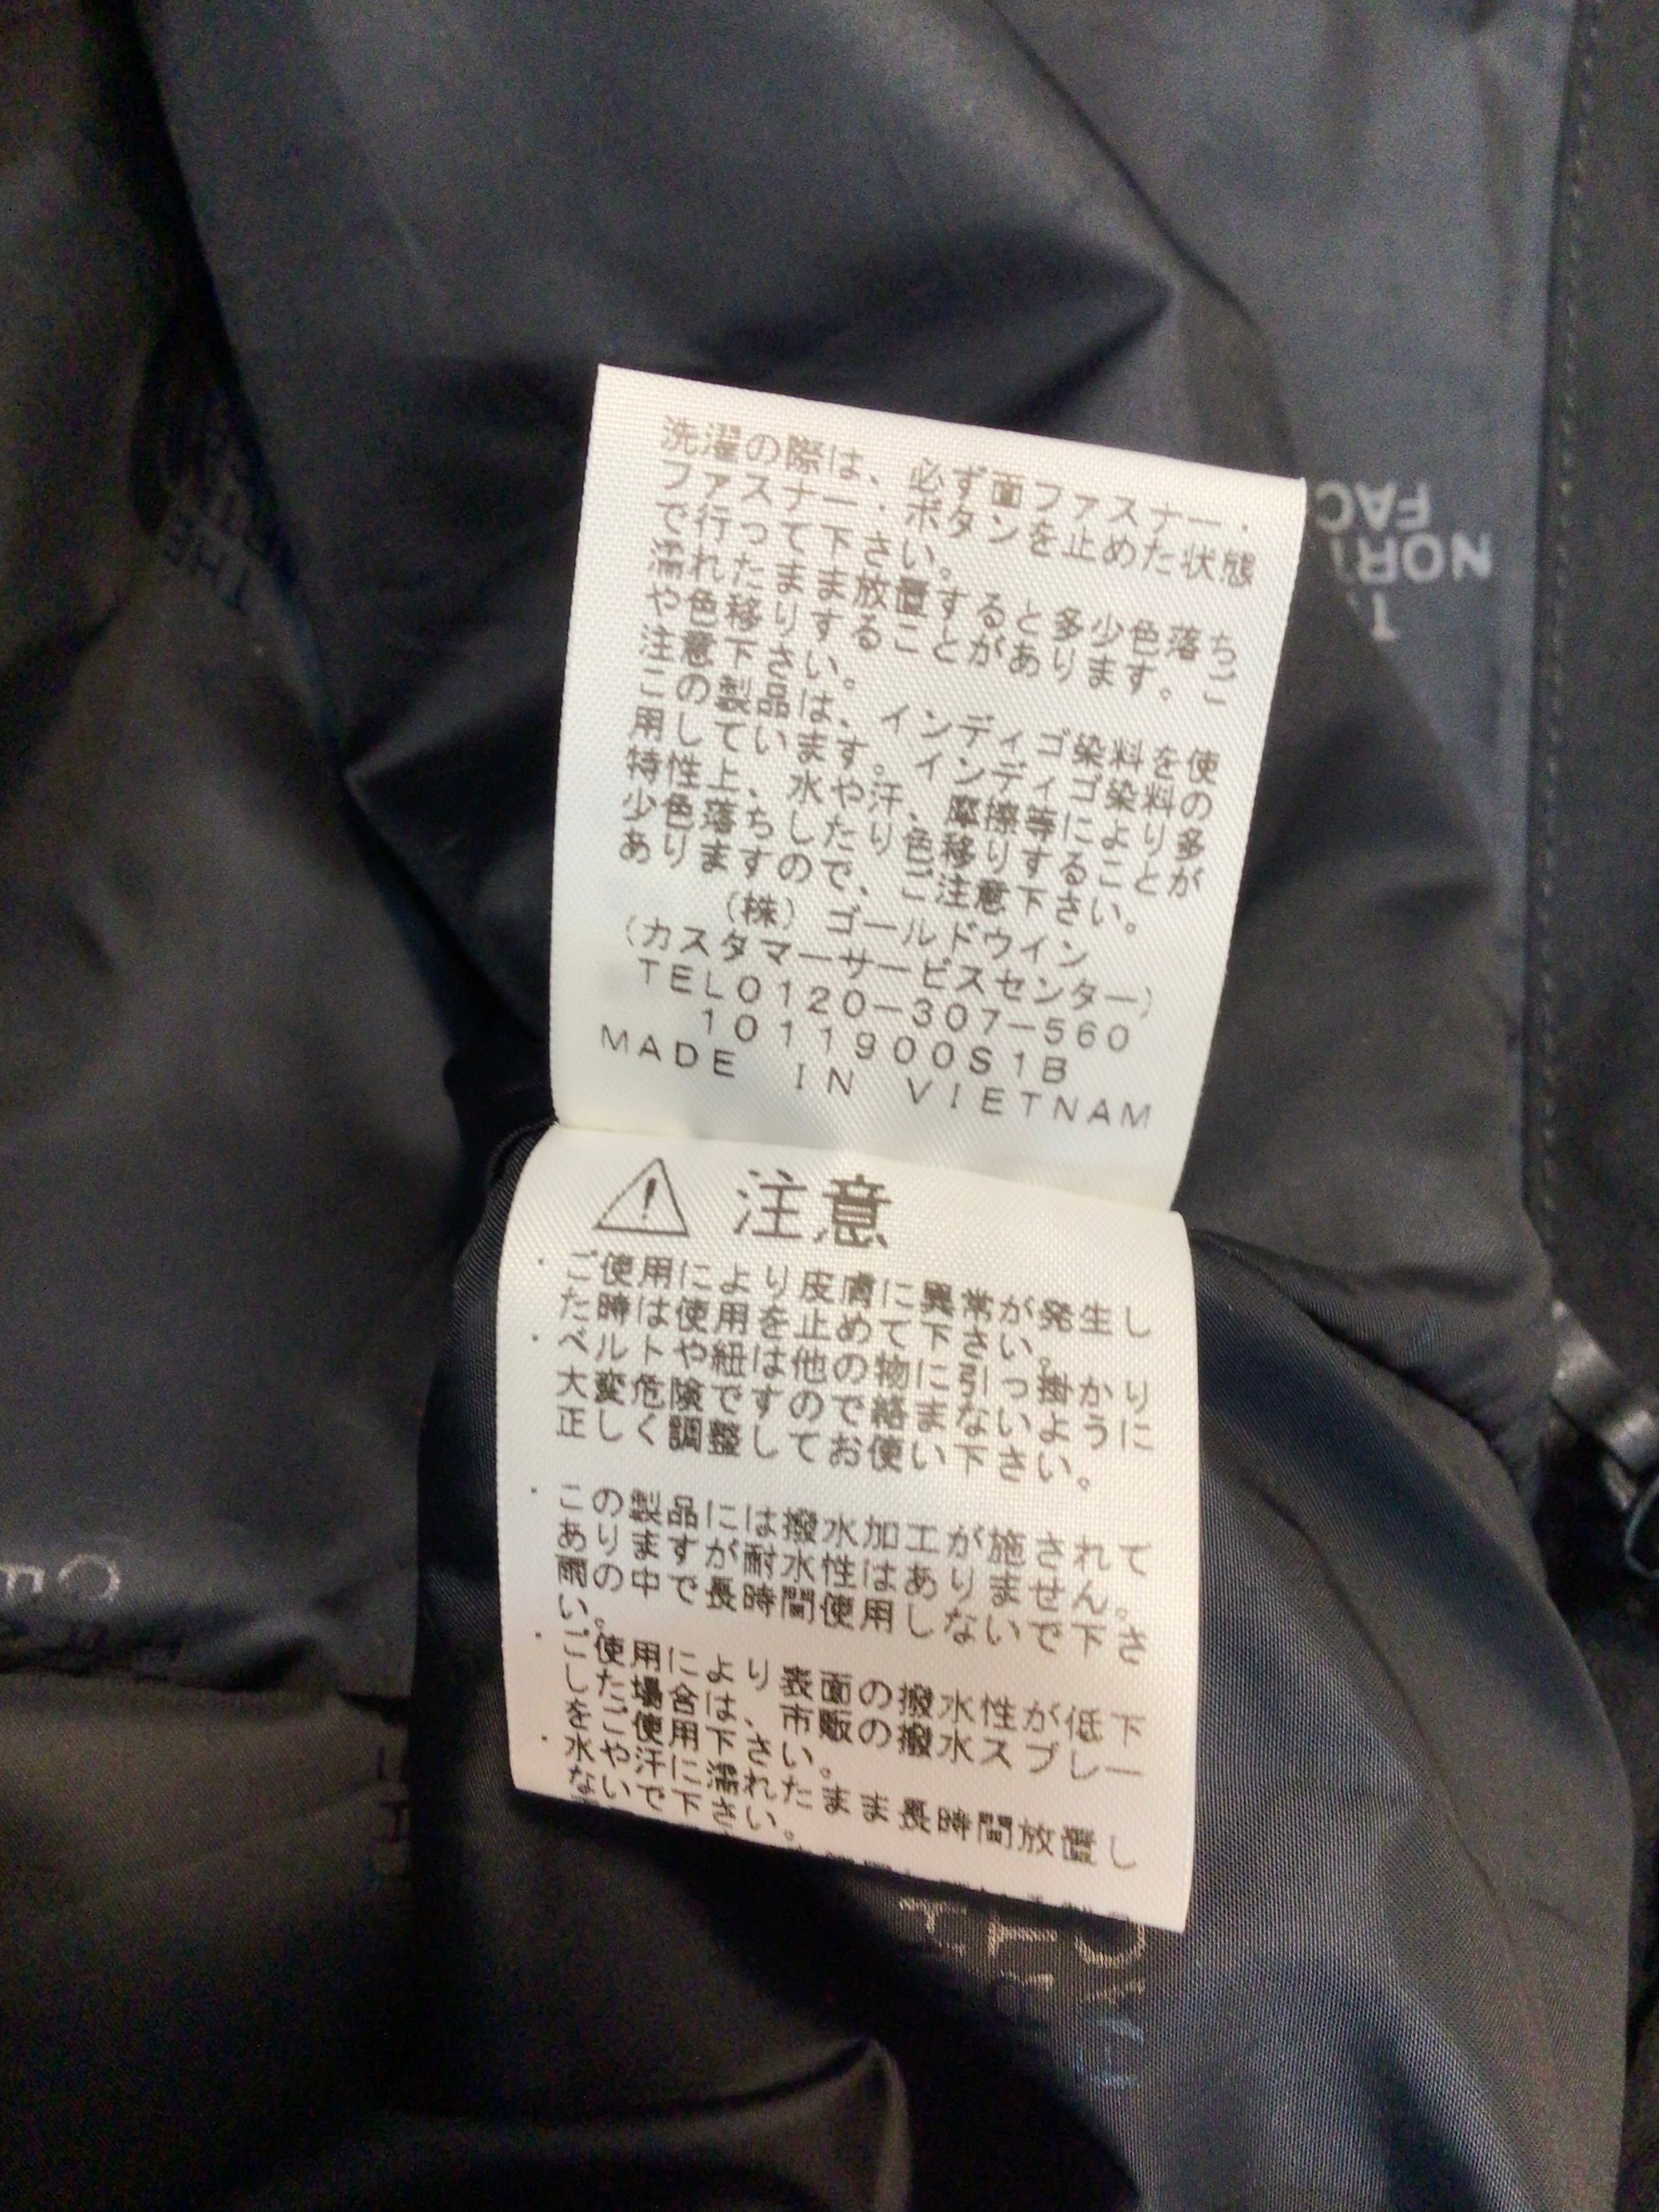 洗濯の際は、必ず面ファスナー・
ファスナー・ボタンを止めた状態
で行って下さい。
濡れたまま放置すると多少色落ち
や色移りすることがあります。ご
注意下さい。
この製品は、インディゴ染料を使
用しています。インディゴ染料の
特性上、水や汗、摩擦等により多
少色落ちしたり色移りすることが
ありますので、ご注意下さい。
（株）ゴールドウイン
（カスタマーサービスセンター）
TEL0120-307-560
1011900S1B
MADE IN VIETNAM
注意
・ご使用により皮膚に異常が発生し
た時は使用を止めて下さい。
・ベルトや紐は他の物に引っ掛かり
大変危険ですので絡まないように
正しく調整してお使い下さい。
・この製品には撥水加工が施されて
ありますが耐水性はありません。
雨の中で長時間使用しないで下さ
い。
・ご使用により表面の撥水性が低下
した場合は、市販の撥水スプレー
をご使用下さい。
・水や汗に濡れたまま長時間放置し
ないで下さい。
NORT
FAC
THE